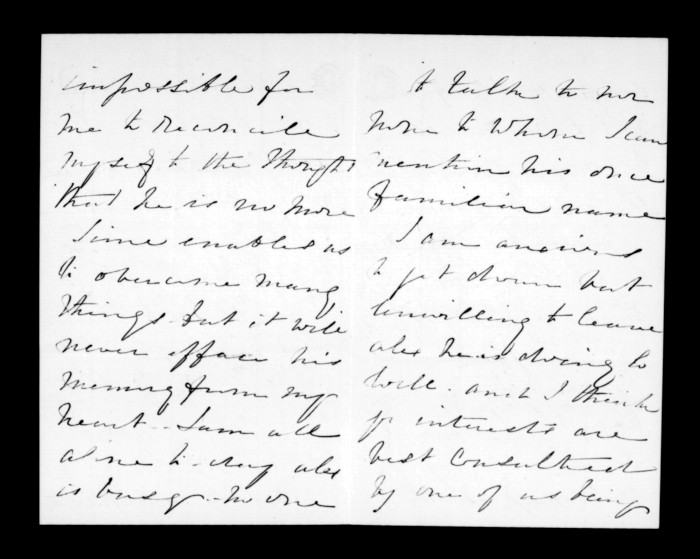 impossible for
me to reconcile
myself to the thought
that he is no more
Time enables us
to overcome many
things - but it will
never efface his
memory from my
heart - I am all
alone to-day alex
is busy - no one
to talk to no
none to whom I can
mention his once
familiar name
I am anxious
to get down but
unwilling to leave
alex he is doing so
well. and I think
yr interests are
best consulted
by one of us being